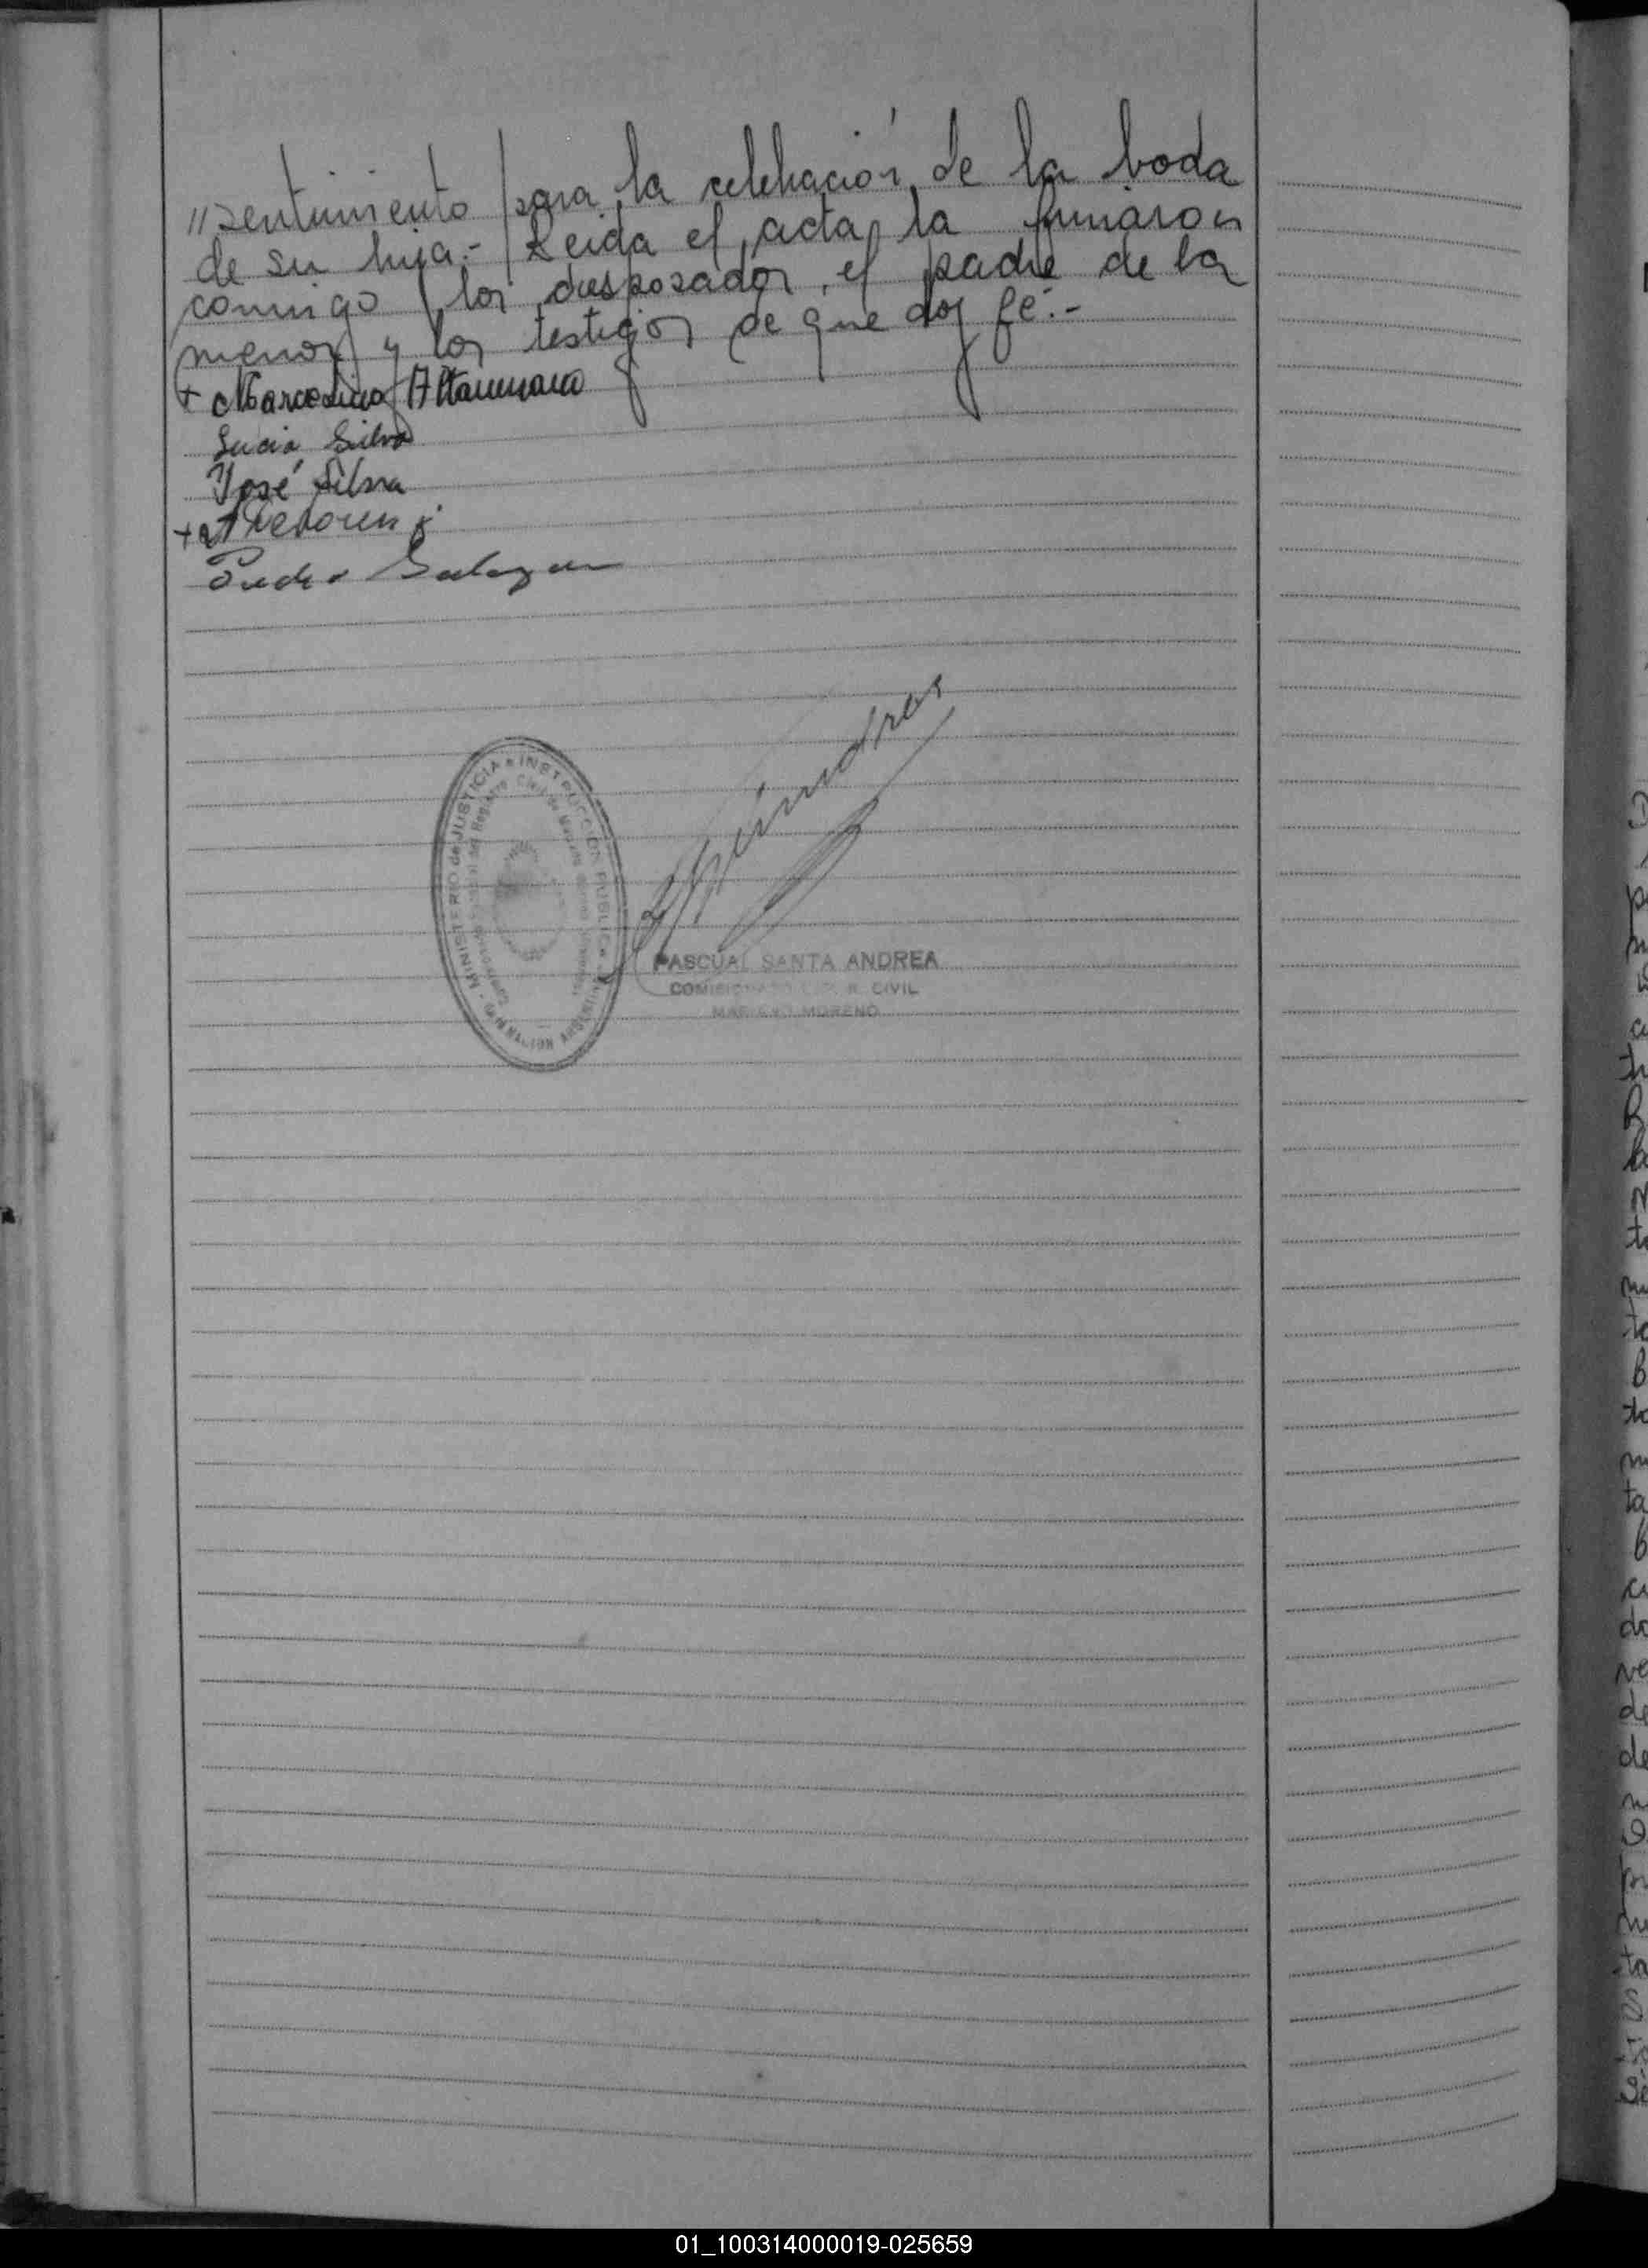 //sentimiento para la celebración de la boda
de su hija.- Leida el acta la firmaron
conmigo los desposados, el padre de la
menor y los testigos de que doy fé.-
+ Marcelino Altamirano
Lucia Silva
José Silva
+
Pedro Salazar
MINISTERIO de JUSTICIA e INSTRUCCION PUBLICA
de la NACION ARGENTINA
PASCUAL SANTA ANDREA
COMISIONADO R. CIVIL
MARIANO MORENO
01_100314000019-025659